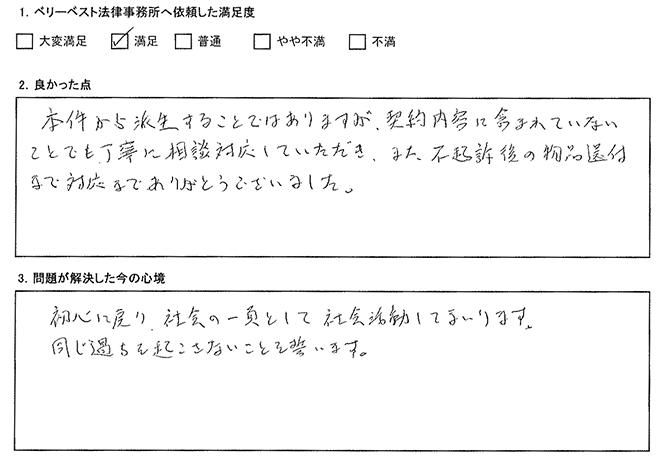 1. ベリーベスト法律事務所へ依頼した満足度
大変満足 満足 普通 やや不満 不満
2. 良かった点
本件から派生することではありますが、契約内容に含まれていない
ことでも丁寧に相談対応していただき、また、不起訴後の物品送付
まで対応までありがとうございました。
3. 問題が解決した今の心境
初心に戻り、社会の一員として社会活動してまいります。
同じ過ちを起こさないことを誓います。